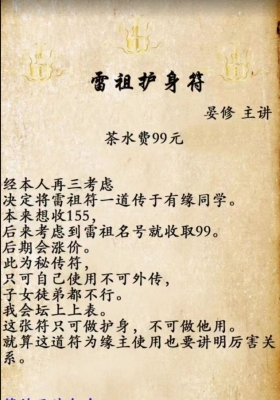 雷祖护身符
晏修 主讲
茶水费99元
经本人再三考虑
决定将雷祖符一道传于有缘同学。
本来想收155，
后来考虑到雷祖名号就收取99。
后期会涨价。
此为秘传符，
只可自己使用不可外传，
子女徒弟都不行。
我会坛上上表。
这张符只可做护身，不可做他用。
就算这道符为缘主使用也要讲明厉害关
系。